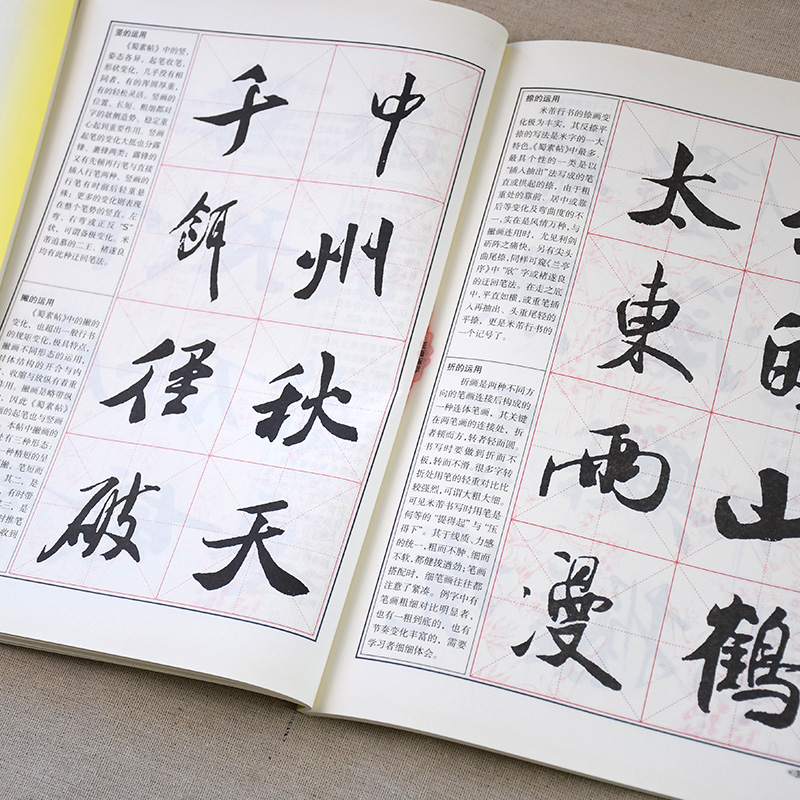 竖的运用
《蜀素帖》中的竖,
姿态各异,起笔收笔,
形状变化,几乎没有相
同者,有的浑圆厚重,
有的轻松灵活。竖画的
位置、长短、粗细都对
字的欹侧造势、稳定重
心起到重要作用。竖画
起笔的变化大抵也分露
锋、藏锋两类;露锋的
又有先顿再行笔与直接
插入行笔两种。竖画的
行笔有时前后轻重悬
殊;更多的变化则表现
在整个笔势的竖直、左
弯、右弯或正反“S”
状,可谓备极变化。米
芾追慕的二王、褚遂良
均有此种迂回笔法。
撇的运用
《蜀素帖》中的撇的
变化,也超出一般行书
的规矩变化,极具特点,
撇画不同形态的运用,
体结构的开合与内
、收缩与放纵有着重
用。撇画是略带纵
因此《蜀素帖》
的起笔也与竖画
。本帖中撇画的
处有三种形态:
一种精短的早
撇,笔短而
。其二,是
,有时带
三,是
时推笔
收到
千 中
餌 州
径 秋
破 天
捺的运用
米芾行书的捺画变
化极为丰实,其反捺平
捺的写法是米字的一大
特色。《蜀素帖》中最多、
最具个性的一类是以
“插入抽出”法写成的笔
直或拱起的捺,由于粗
重处的靠前、居中或靠
后等变化及弯曲度的不
一,实在是风情万种,与
撇画连用时,尤见利剑
斫阵之痛快。另有尖头
曲尾捺,同样可窥《兰亭
序》中“欣”字或褚遂良
的迂回笔法。在走之底
中,平直如横,或重笔插
入再抽出、头重尾轻的
平捺,更是米芾行书的
一个记号了。
折的运用
折画是两种不同方
向的笔画连接后构成的
一种连体笔画,其关键
在两笔画的连接处,折
者顿而方,转者轻而圆。
书写时要做到折而不
板,转而不滑。很多字转
折处用笔的轻重对比比
较强烈,可谓大粗大细。
可见米芾书写时用笔是
何等的“提得起”与“压
得下”。其于线质、力感
的统一,粗而不肿、细而
不软,都健拔遒劲;笔画
搭配时,细笔画往往都
注意了紧凑。例字中有
笔画粗细对比明显者,
也有一粗到底的,也有
节奏变化丰富的,需要
学习者细细体会。
太
東
雨 山
漫 鶴